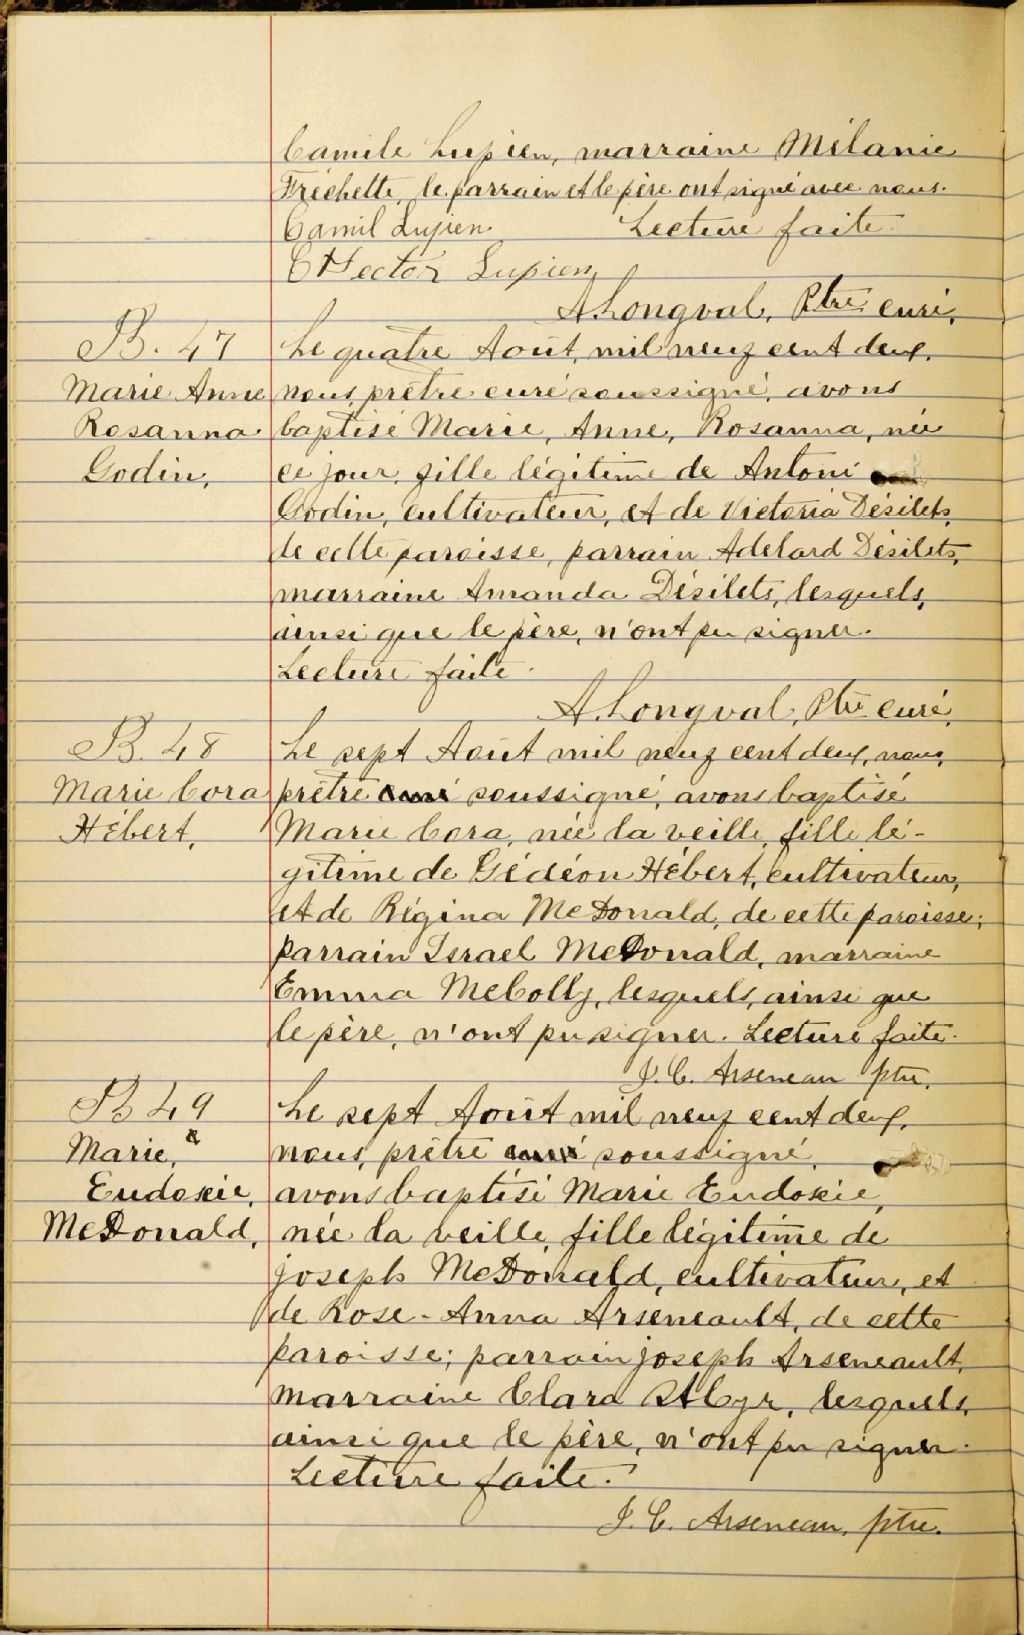 Camile Lupien, marraine Mélanie
Fréchette, le parrain et le père ont signé avec nous.
Camil Lupien. Lecture faite.
Hector Lupien
A. Longval, Ptre curé.
B. 47
Le quatre Août, mil neuf cent deux,
Marie Anne
nous, prêtre curé soussigné, avons
Rosanna
baptisé Marie, Anne, Rosanna, née
Godin,
ce jour, fille légitime de Antoni
Godin, cultivateur, et de Victoria Désilets,
de cette paroisse, parrain Adelard Désilets,
marraine Amanda Désilets, lesquels,
ainsi que le père, n'ont pu signer.
Lecture faite.
A. Longval, Ptre curé.
B. 48
Le sept Août mil neuf cent deux, nous,
Marie Cora
prêtre curé soussigné, avons baptisé
Hébert,
Marie Cora, née la veille, fille lé-
gitime de Gédéon Hébert, cultivateur,
et de Régina McDonald, de cette paroisse;
parrain Israel McDonald, marraine
Emma McColly, lesquels, ainsi que
le père, n'ont pu signer. Lecture faite.
J. C. Arseneau ptre.
B 49
Le sept Août mil neuf cent deux,
Marie,
nous, prêtre curé soussigné,
Eudoxie,
avons baptisé Marie Eudoxie,
McDonald,
née la veille, fille légitime de
Joseph McDonald, cultivateur, et
de Rose-Anna Arseneault, de cette
paroisse; parrain Joseph Arseneault,
marraine Clara St Cyr, lesquels,
ainsi que le père, n'ont pu signer.
Lecture faite.
J. C. Arseneau, ptre.